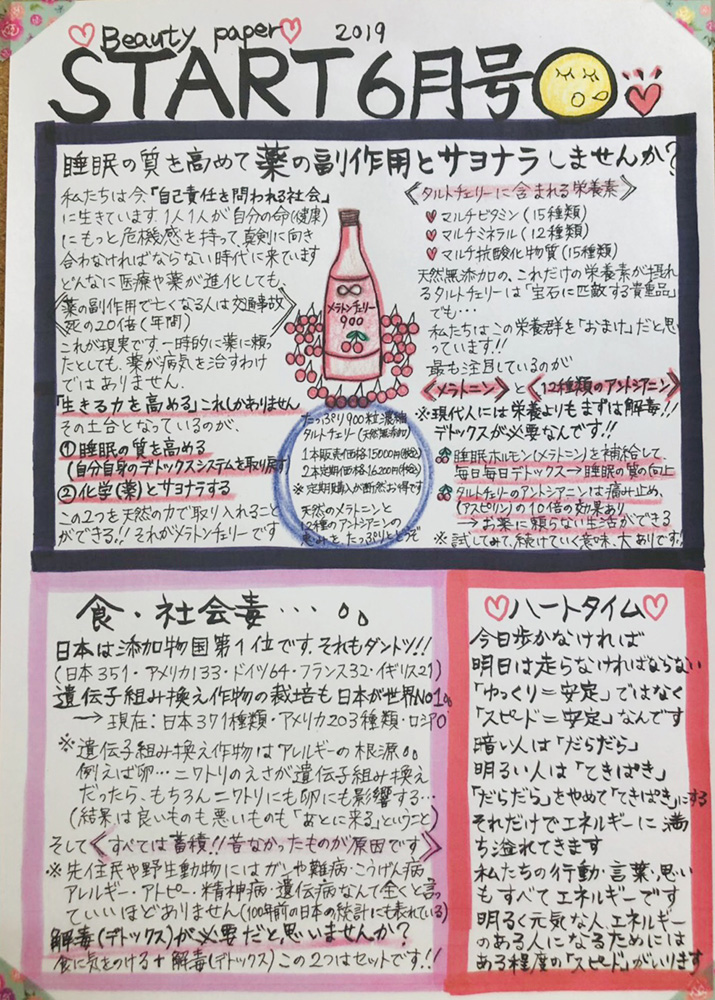 Beauty paper 2019
START 6月号
睡眠の質を高めて薬の副作用とサヨナラしませんか？
私たちは今、「自己責任を問われる社会」
に生きています。1人1人が自分の命(健康)
にもっと危機感を持って、真剣に向き
合わなければならない時代に来ています
どんなに医療や薬が進化しても、
《薬の副作用で亡くなる人は交通事故
死の20倍(年間)》
これが現実です。一時的に薬に頼っ
たとしても、薬が病気を治すわけ
ではありません。
「生きる力を高める」これしかありません
その土台となっているのが、
①睡眠の質を高める
(自分自身のデトックスシステムを取り戻す)
②化学(薬)とサヨナラする
この2つを天然の力で取り入れること
ができる!! それがメラトンチェリーです
∞
メラトンチェリー
900
たっぷり900粒濃縮
タルトチェリー(天然無添加)
1本販売価格15000円(税込)
2本定期価格16200円(税込)
※定期購入が断然お得です
天然のメラトニンと
12種のアントシアニンの
恵みをたっぷりとどうぞ
《タルトチェリーに含まれる栄養素》
マルチビタミン(15種類)
マルチミネラル(12種類)
マルチ抗酸化物質(15種類)
天然無添加の、これだけの栄養素が摂れ
るタルトチェリーは「宝石に匹敵する貴重品」
でも…
私たちはこの栄養群を「おまけ」だと思
っています!!
最も注目しているのが
《メラトニン》《12種類のアントシアニン》
※現代人には栄養よりもまずは解毒!!
デトックスが必要なんです!!
睡眠ホルモン(メラトニン)を補給して、
毎日毎日デトックス→睡眠の質の向上
タルトチェリーのアントシアニンは痛み止め、
(アスピリン)の10倍の効果あり
→お薬に頼らない生活ができる
※試してみて、続けていく意味、大ありです!!
食・社会毒…
日本は添加物国第1位です。それもダントツ!!
(日本351・アメリカ133・ドイツ64・フランス32・イギリス21)
遺伝子組み換え作物の栽培も日本が世界No1。
→現在：日本371種類・アメリカ203種類・ロシア0
※遺伝子組み換え作物はアレルギーの根源。
例えば卵…ニワトリのえさが遺伝子組み換え
だったら、もちろんニワトリにも卵にも影響する…
(結果は良いものも悪いものも「あとに来る」ということ)
そして《すべては蓄積!! 昔なかったものが原因です》
※先住民や野生動物にはガンや難病・こうげん病
アレルギー・アトピー・精神病・遺伝病なんて全くと言っ
ていいほどありません(100年前の日本の統計にも表れている)
解毒(デトックス)が必要だと思いませんか？
食に気をつける＋解毒(デトックス)この2つはセットです!!
ハートタイム
今日歩かなければ
明日は走らなければならない
「ゆっくり＝安定」ではなく
「スピード＝安定」なんです
暗い人は「だらだら」
明るい人は「てきぱき」
「だらだら」をやめて「てきぱき」にする
それだけでエネルギーに満
ち溢れてきます
私たちの行動・言葉・思い
もすべてエネルギーです
明るく元気な人エネルギー
のある人になるためには
ある程度の「スピード」がいります